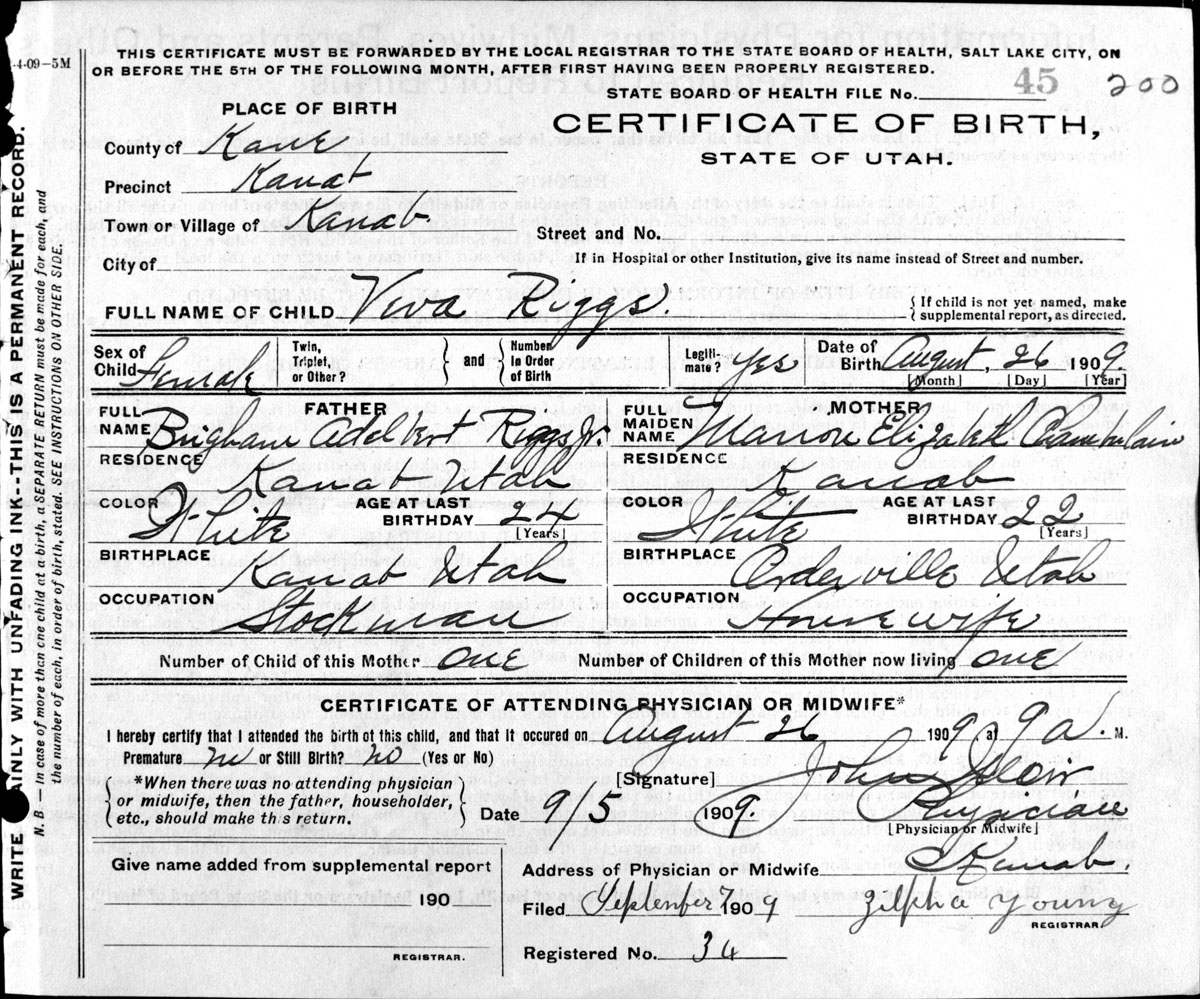 4-09-5M
THIS CERTIFICATE MUST BE FORWARDED BY THE LOCAL REGISTRAR TO THE STATE BOARD OF HEALTH, SALT LAKE CITY, ON
OR BEFORE THE 5TH OF THE FOLLOWING MONTH, AFTER FIRST HAVING BEEN PROPERLY REGISTERED.
STATE BOARD OF HEALTH FILE No. 45 200
PLACE OF BIRTH
CERTIFICATE OF BIRTH,
STATE OF UTAH.
County of Kane
Precinct Kanab
Town or Village of Kanab.
Street and No.
City of
If in Hospital or other Institution, give its name instead of Street and number.
FULL NAME OF CHILD Viva Riggs.
{ If child is not yet named, make
supplemental report, as directed.
Sex of Child Female
Twin, Triplet, or Other? } and { Number in Order of Birth
Legitimate? Yes
Date of Birth August, 26 1909.
[Month] [Day] [Year]
FATHER
FULL NAME Brigham Adelbert Riggs Jr.
RESIDENCE Kanab Utah
COLOR White AGE AT LAST BIRTHDAY 24 [Years]
BIRTHPLACE Kanab Utah
OCCUPATION Stockman
MOTHER
FULL MAIDEN NAME Marion Elizabeth Chamberlain
RESIDENCE Kanab
COLOR White AGE AT LAST BIRTHDAY 22 [Years]
BIRTHPLACE Orderville Utah
OCCUPATION Housewife
Number of Child of this Mother one Number of Children of this Mother now living one
CERTIFICATE OF ATTENDING PHYSICIAN OR MIDWIFE*
I hereby certify that I attended the birth of this child, and that it occured on August 26 1909, at 9 a. M.
Premature no or Still Birth? no (Yes or No)
*When there was no attending physician
or midwife, then the father, householder,
etc., should make this return.
[Signature] John
Date 9 5 1909. Physician
[Physician or Midwife]
Give name added from supplemental report
190
REGISTRAR.
Address of Physician or Midwife Kanab.
Filed September 7 1909 Zilpha Young
REGISTRAR
Registered No. 34
WRITE PLAINLY WITH UNFADING INK--THIS IS A PERMANENT RECORD.
N. B. — In case of more than one child at a birth, a SEPARATE RETURN must be made for each, and
the number of each, in order of birth, stated. SEE INSTRUCTIONS ON OTHER SIDE.